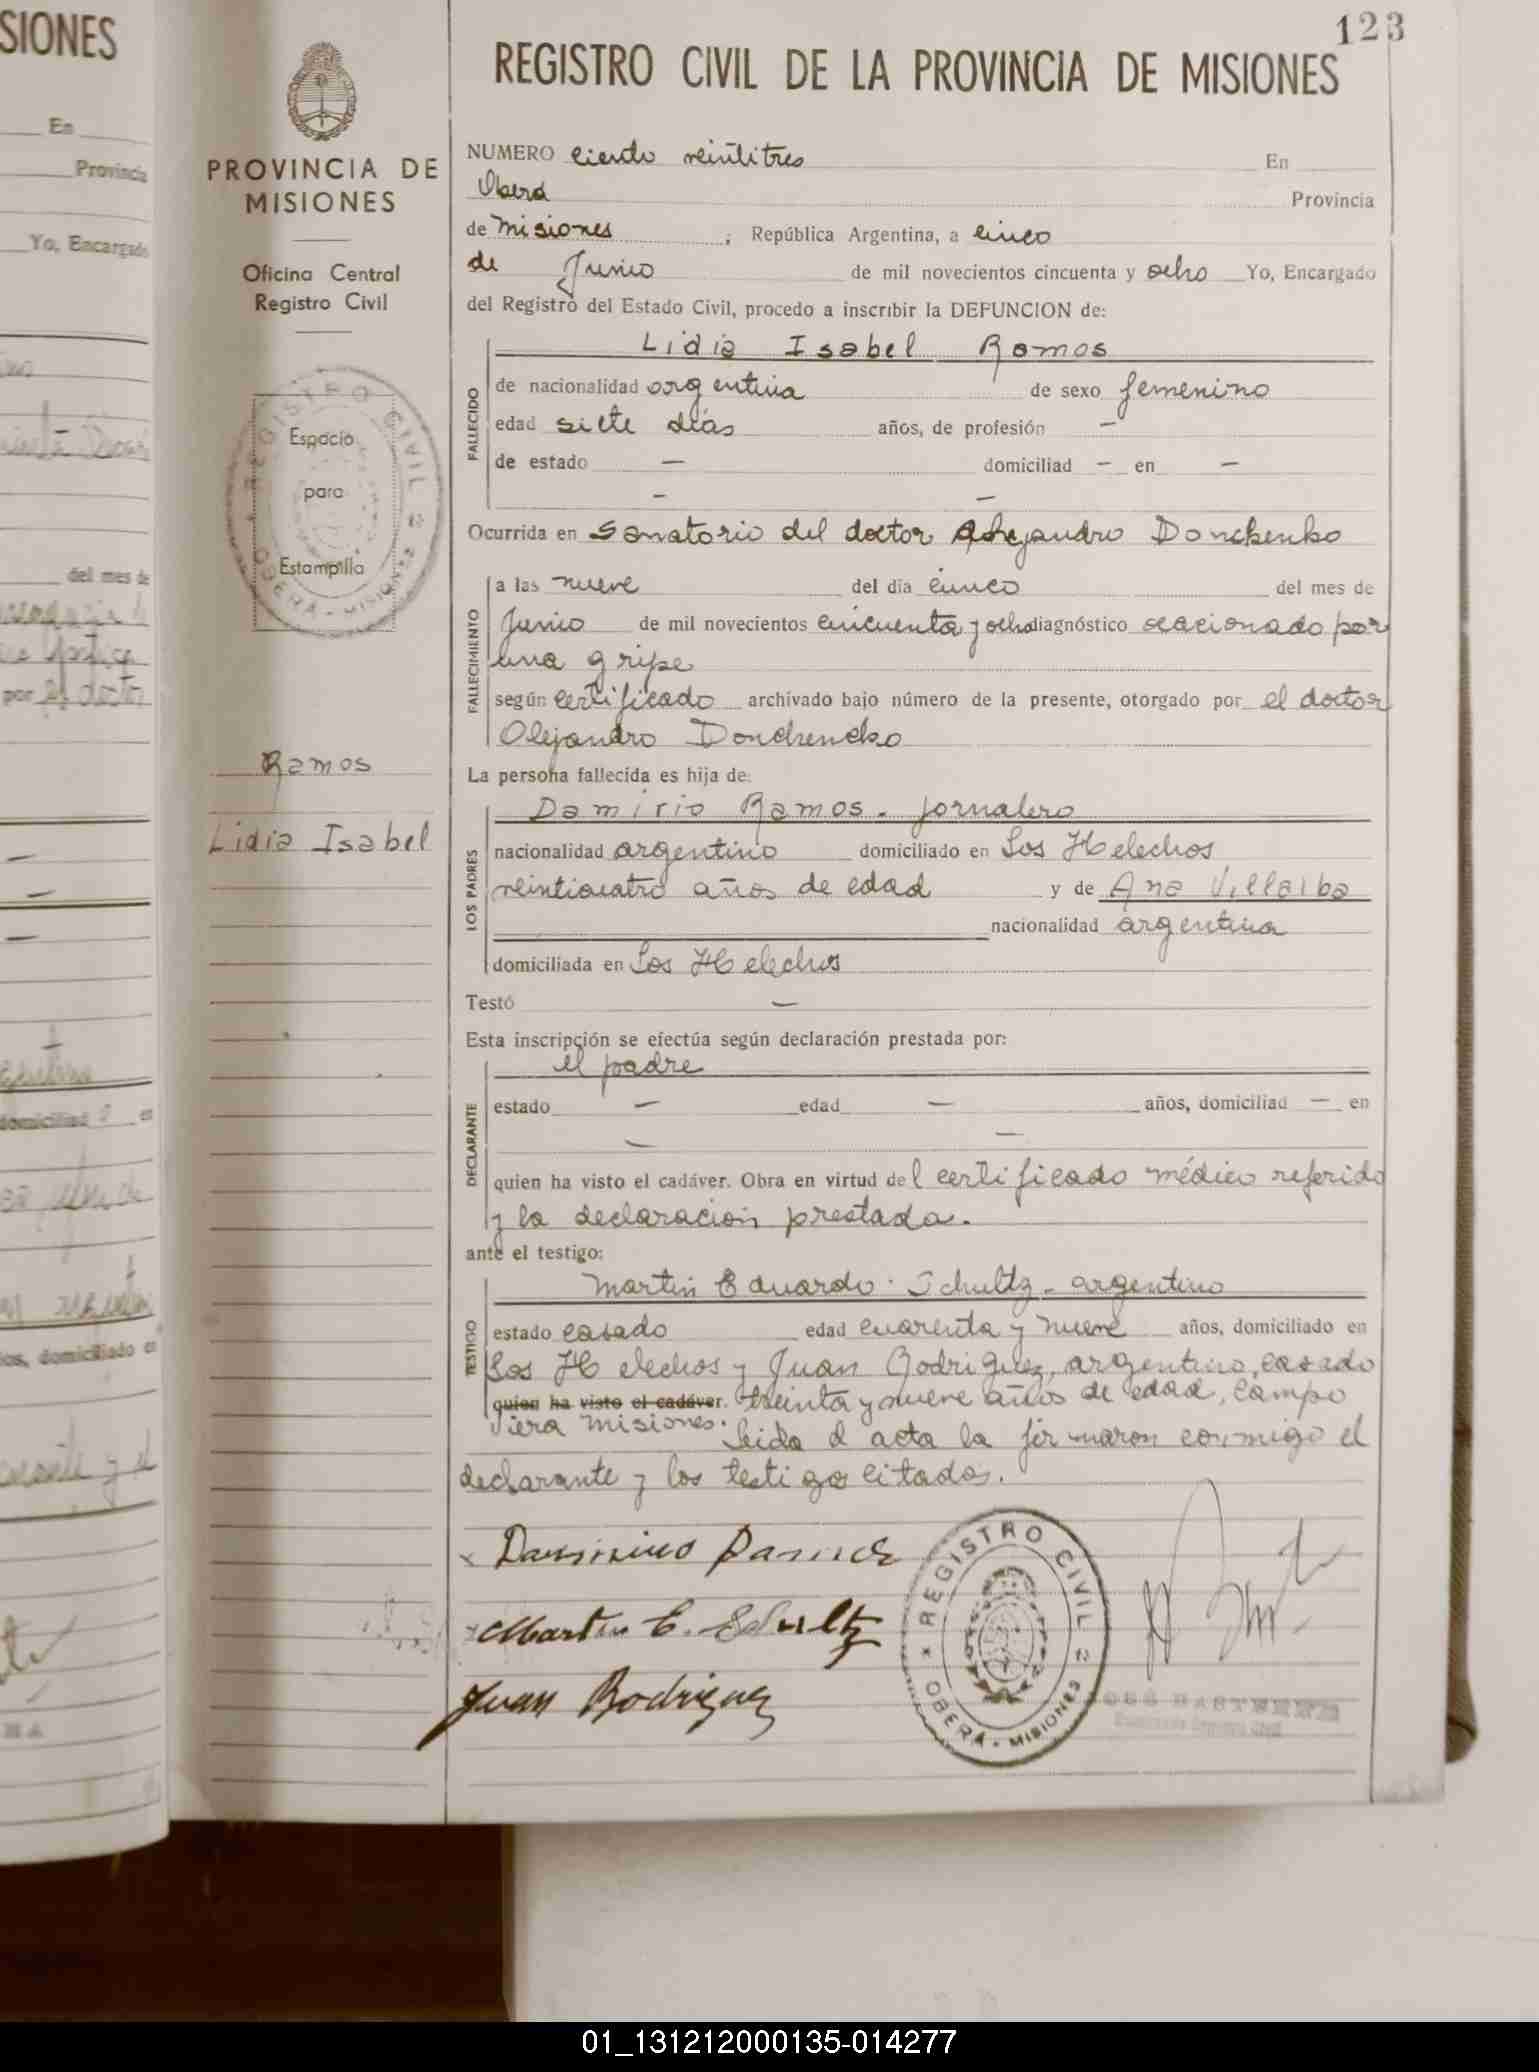 SIONES
En
Provincia
Yo, Encargado
del mes de
por el doctor
domiciliad
en
domiciliado
123
PROVINCIA DE
MISIONES
Oficina Central
Registro Civil
REGISTRO CIVIL 2
OBERÁ - MISIONES
Espacio
para
Estampilla
Ramos
Lidia Isabel
REGISTRO CIVIL DE LA PROVINCIA DE MISIONES
NUMERO ciento veintitres En
Oberá Provincia
de Misiones ; República Argentina, a cinco
de Junio de mil novecientos cincuenta y ocho Yo, Encargado
del Registro del Estado Civil, procedo a inscribir la DEFUNCION de:
Lidia Isabel Ramos
FALLECIDO
de nacionalidad argentina de sexo femenino
edad siete días años, de profesión —
de estado — domiciliad — en —
— —
Ocurrida en Sanatorio del doctor Alejandro Donchenko
FALLECIMIENTO
a las nueve del día cinco del mes de
Junio de mil novecientos cincuenta y ocho diagnóstico ocacionado por
una gripe
según certificado archivado bajo número de la presente, otorgado por el doctor
Alejandro Donchencko
La persona fallecida es hija de:
LOS PADRES
Damirio Ramos - jornalero
nacionalidad argentino domiciliado en Los Helechos
veinticuatro años de edad y de Ana Villalba
nacionalidad argentina
domiciliada en Los Helechos
Testó —
Esta inscripción se efectúa según declaración prestada por:
DECLARANTE
el padre
estado — edad — años, domiciliad — en
— —
quien ha visto el cadáver. Obra en virtud del certificado médico referido
y la declaración prestada.
ante el testigo:
TESTIGO
Martin Eduardo Schultz - argentino
estado casado edad cuarenta y nueve años, domiciliado en
Los Helechos y Juan Rodriguez, argentino, casado
quien ha visto el cadáver. treinta y nueve años de edad, Campo
Viera Misiones. Leida el acta la firmaron conmigo el
declarante y los testigos citados.
x Ramos
x Martin E. Schultz
Juan Rodriguez
REGISTRO CIVIL 2
OBERÁ - MISIONES
01_131212000135-014277